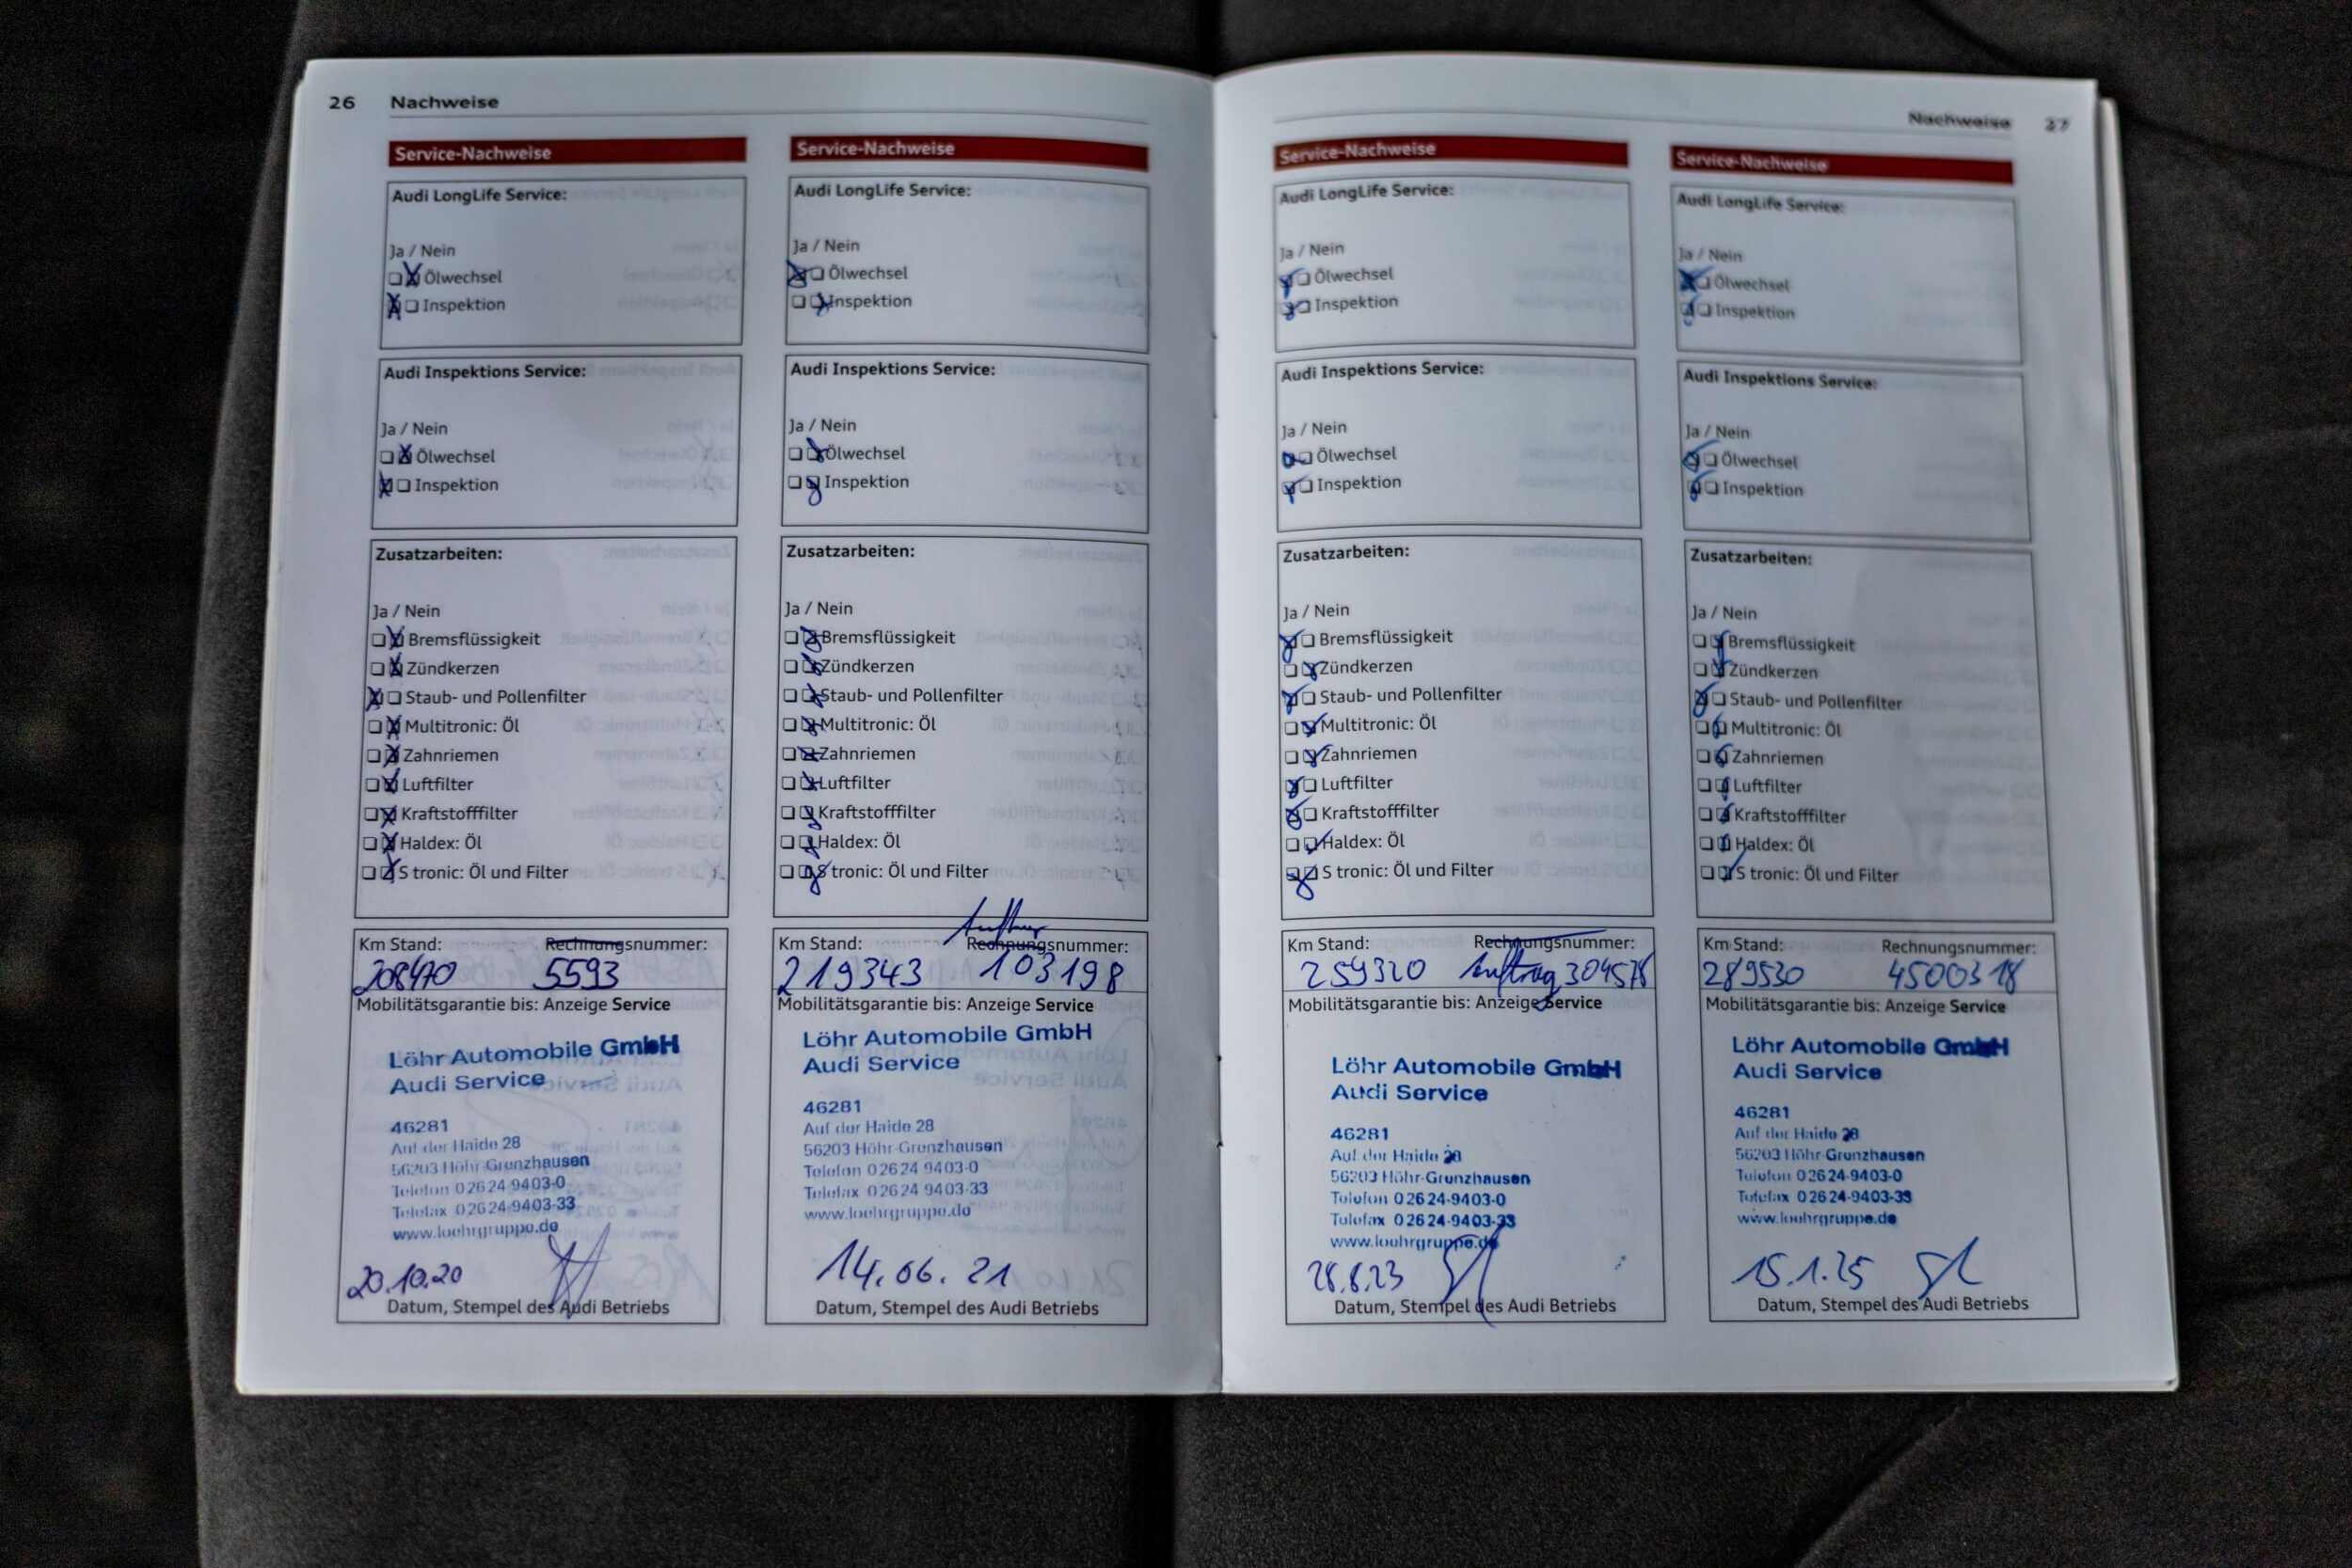 26 Nachweise
Service-Nachweise
Audi LongLife Service:
Ja / Nein
Ölwechsel
Inspektion
Audi Inspektions Service:
Ja / Nein
Ölwechsel
Inspektion
Zusatzarbeiten:
Ja / Nein
Bremsflüssigkeit
Zündkerzen
Staub- und Pollenfilter
Multitronic: Öl
Zahnriemen
Luftfilter
Kraftstofffilter
Haldex: Öl
S tronic: Öl und Filter
Km Stand: Rechnungsnummer:
208470 5593
Mobilitätsgarantie bis: Anzeige Service
Löhr Automobile GmbH
Audi Service
46281
Auf der Haide 28
56203 Höhr-Grenzhausen
Telefon 02624-9403-0
Telefax 02624-9403-33
www.loehrgruppe.de
20.10.20
Datum, Stempel des Audi Betriebs
Service-Nachweise
Audi LongLife Service:
Ja / Nein
Ölwechsel
Inspektion
Audi Inspektions Service:
Ja / Nein
Ölwechsel
Inspektion
Zusatzarbeiten:
Ja / Nein
Bremsflüssigkeit
Zündkerzen
Staub- und Pollenfilter
Multitronic: Öl
Zahnriemen
Luftfilter
Kraftstofffilter
Haldex: Öl
S tronic: Öl und Filter
Km Stand: Rechnungsnummer:
219343 103198
Mobilitätsgarantie bis: Anzeige Service
Löhr Automobile GmbH
Audi Service
46281
Auf der Haide 28
56203 Höhr-Grenzhausen
Telefon 02624 9403-0
Telefax 02624 9403-33
www.loehrgruppe.de
14.06.21
Datum, Stempel des Audi Betriebs
Nachweise 27
Service-Nachweise
Audi LongLife Service:
Ja / Nein
Ölwechsel
Inspektion
Audi Inspektions Service:
Ja / Nein
Ölwechsel
Inspektion
Zusatzarbeiten:
Ja / Nein
Bremsflüssigkeit
Zündkerzen
Staub- und Pollenfilter
Multitronic: Öl
Zahnriemen
Luftfilter
Kraftstofffilter
Haldex: Öl
S tronic: Öl und Filter
Km Stand: Rechnungsnummer:
259320 Auftrag 304578
Mobilitätsgarantie bis: Anzeige Service
Löhr Automobile GmbH
Audi Service
46281
Auf der Haide 28
56203 Höhr-Grenzhausen
Telefon 02624-9403-0
Telefax 02624-9403-33
www.loehrgruppe.de
28.8.23
Datum, Stempel des Audi Betriebs
Service-Nachweise
Audi LongLife Service:
Ja / Nein
Ölwechsel
Inspektion
Audi Inspektions Service:
Ja / Nein
Ölwechsel
Inspektion
Zusatzarbeiten:
Ja / Nein
Bremsflüssigkeit
Zündkerzen
Staub- und Pollenfilter
Multitronic: Öl
Zahnriemen
Luftfilter
Kraftstofffilter
Haldex: Öl
S tronic: Öl und Filter
Km Stand: Rechnungsnummer:
289530 4500318
Mobilitätsgarantie bis: Anzeige Service
Löhr Automobile GmbH
Audi Service
46281
Auf der Haide 28
56203 Höhr-Grenzhausen
Telefon 02624-9403-0
Telefax 02624-9403-33
www.loehrgruppe.de
15.1.25
Datum, Stempel des Audi Betriebs